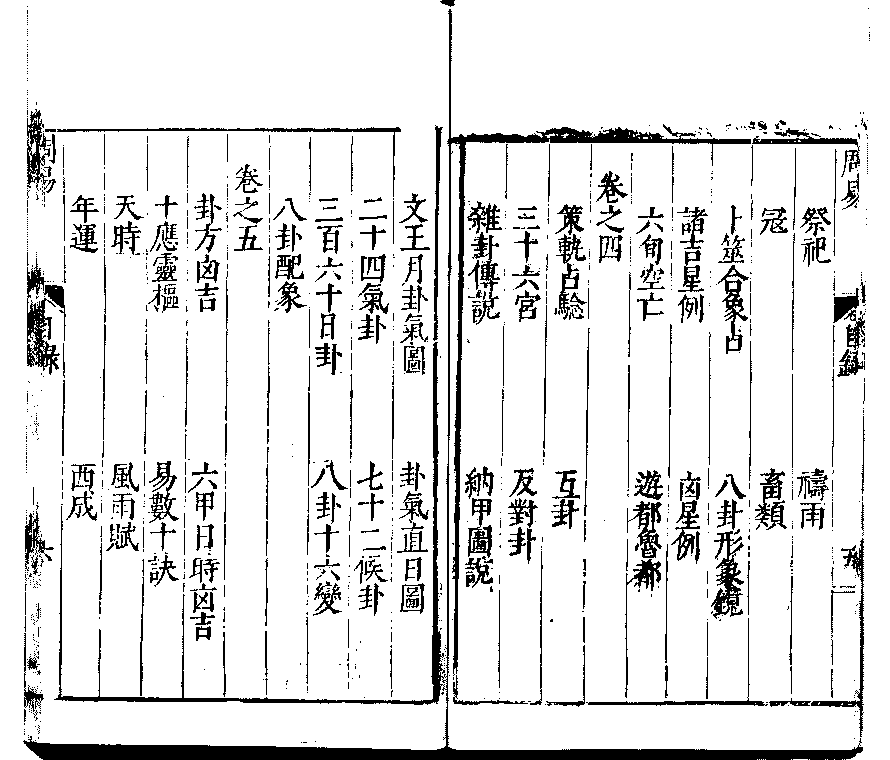 周易
目錄
五
祭祀　禱雨
冠　畜類
卜筮合象占　八卦形象鏡
諸吉星例　凶星例
六旬空亡　遊都魯都
卷之四
策軌占驗　互卦
三十六宮　反對卦
雜卦傳說　納甲圖說
文王月卦氣圖　卦氣直日圖
二十四氣卦　七十二候卦
三百六十日卦　八卦十六變
八卦配象
卷之五
卦方凶吉　六甲日時凶吉
十應靈樞　易數十訣
天時　風雨賦
年運　西成
周易
目錄
六